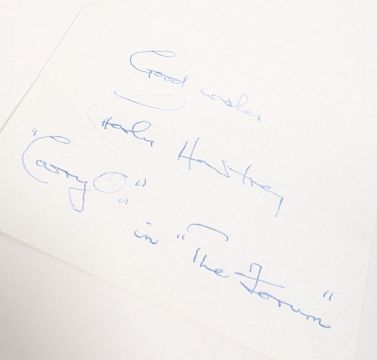 Good wishes
Charles Hawtrey
"Carry On"
in "The Forum"